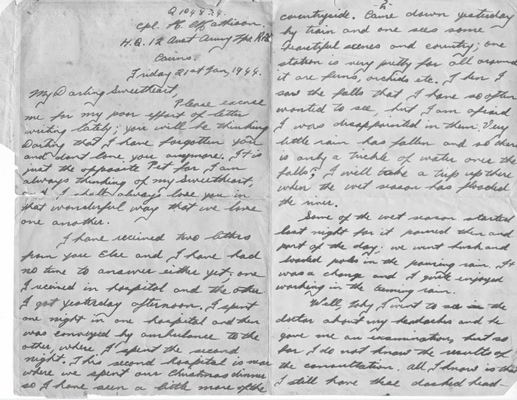 Q104824.
Cpl. K.
H.Q. 12 Aust Army Tps R.A.E.
Cairns.
Friday 21st Jan, 1944.
My Darling Sweetheart,
Please excuse
me for my poor effort of letter
writing lately; you will be thinking
Darling that I have forgotten you
and don't love you anymore. It is
just the opposite Pet for I am
always thinking of my sweetheart.
I shall always love you in
that wonderful way that we love
one another.
I have received two letters
from you Else and I have had
no time to answer either yet; one
I received in hospital and the other
I got yesterday afternoon. I spent
one night in one hospital and then
was conveyed by ambulance to the
other, where I spent the second
night. This second hospital is near
where we spent our Christmas dinner
so I have seen a little more of the
2.
countryside. Came down yesterday
by train and one sees some
beautiful scenes and country; one
station is very pretty for all around
it are ferns, orchids etc. Then I
saw the falls that I have so often
wanted to see, but I am afraid
I was disappointed in them. Very
little rain has fallen and so there
is only a trickle of water over the
falls. I will take a trip up there
when the wet season has flooded
the river.
Some of the wet season started
last night for it poured then and
part of the day; we went bush and
loaded poles in the pouring rain. It
was a change and I quite enjoyed
working in the teeming rain.
Well Toby I went to see the
doctor about my headaches and he
gave me an examination, but so
far I do not know the results of
the consultation. All I know is that
I still have that dashed head-